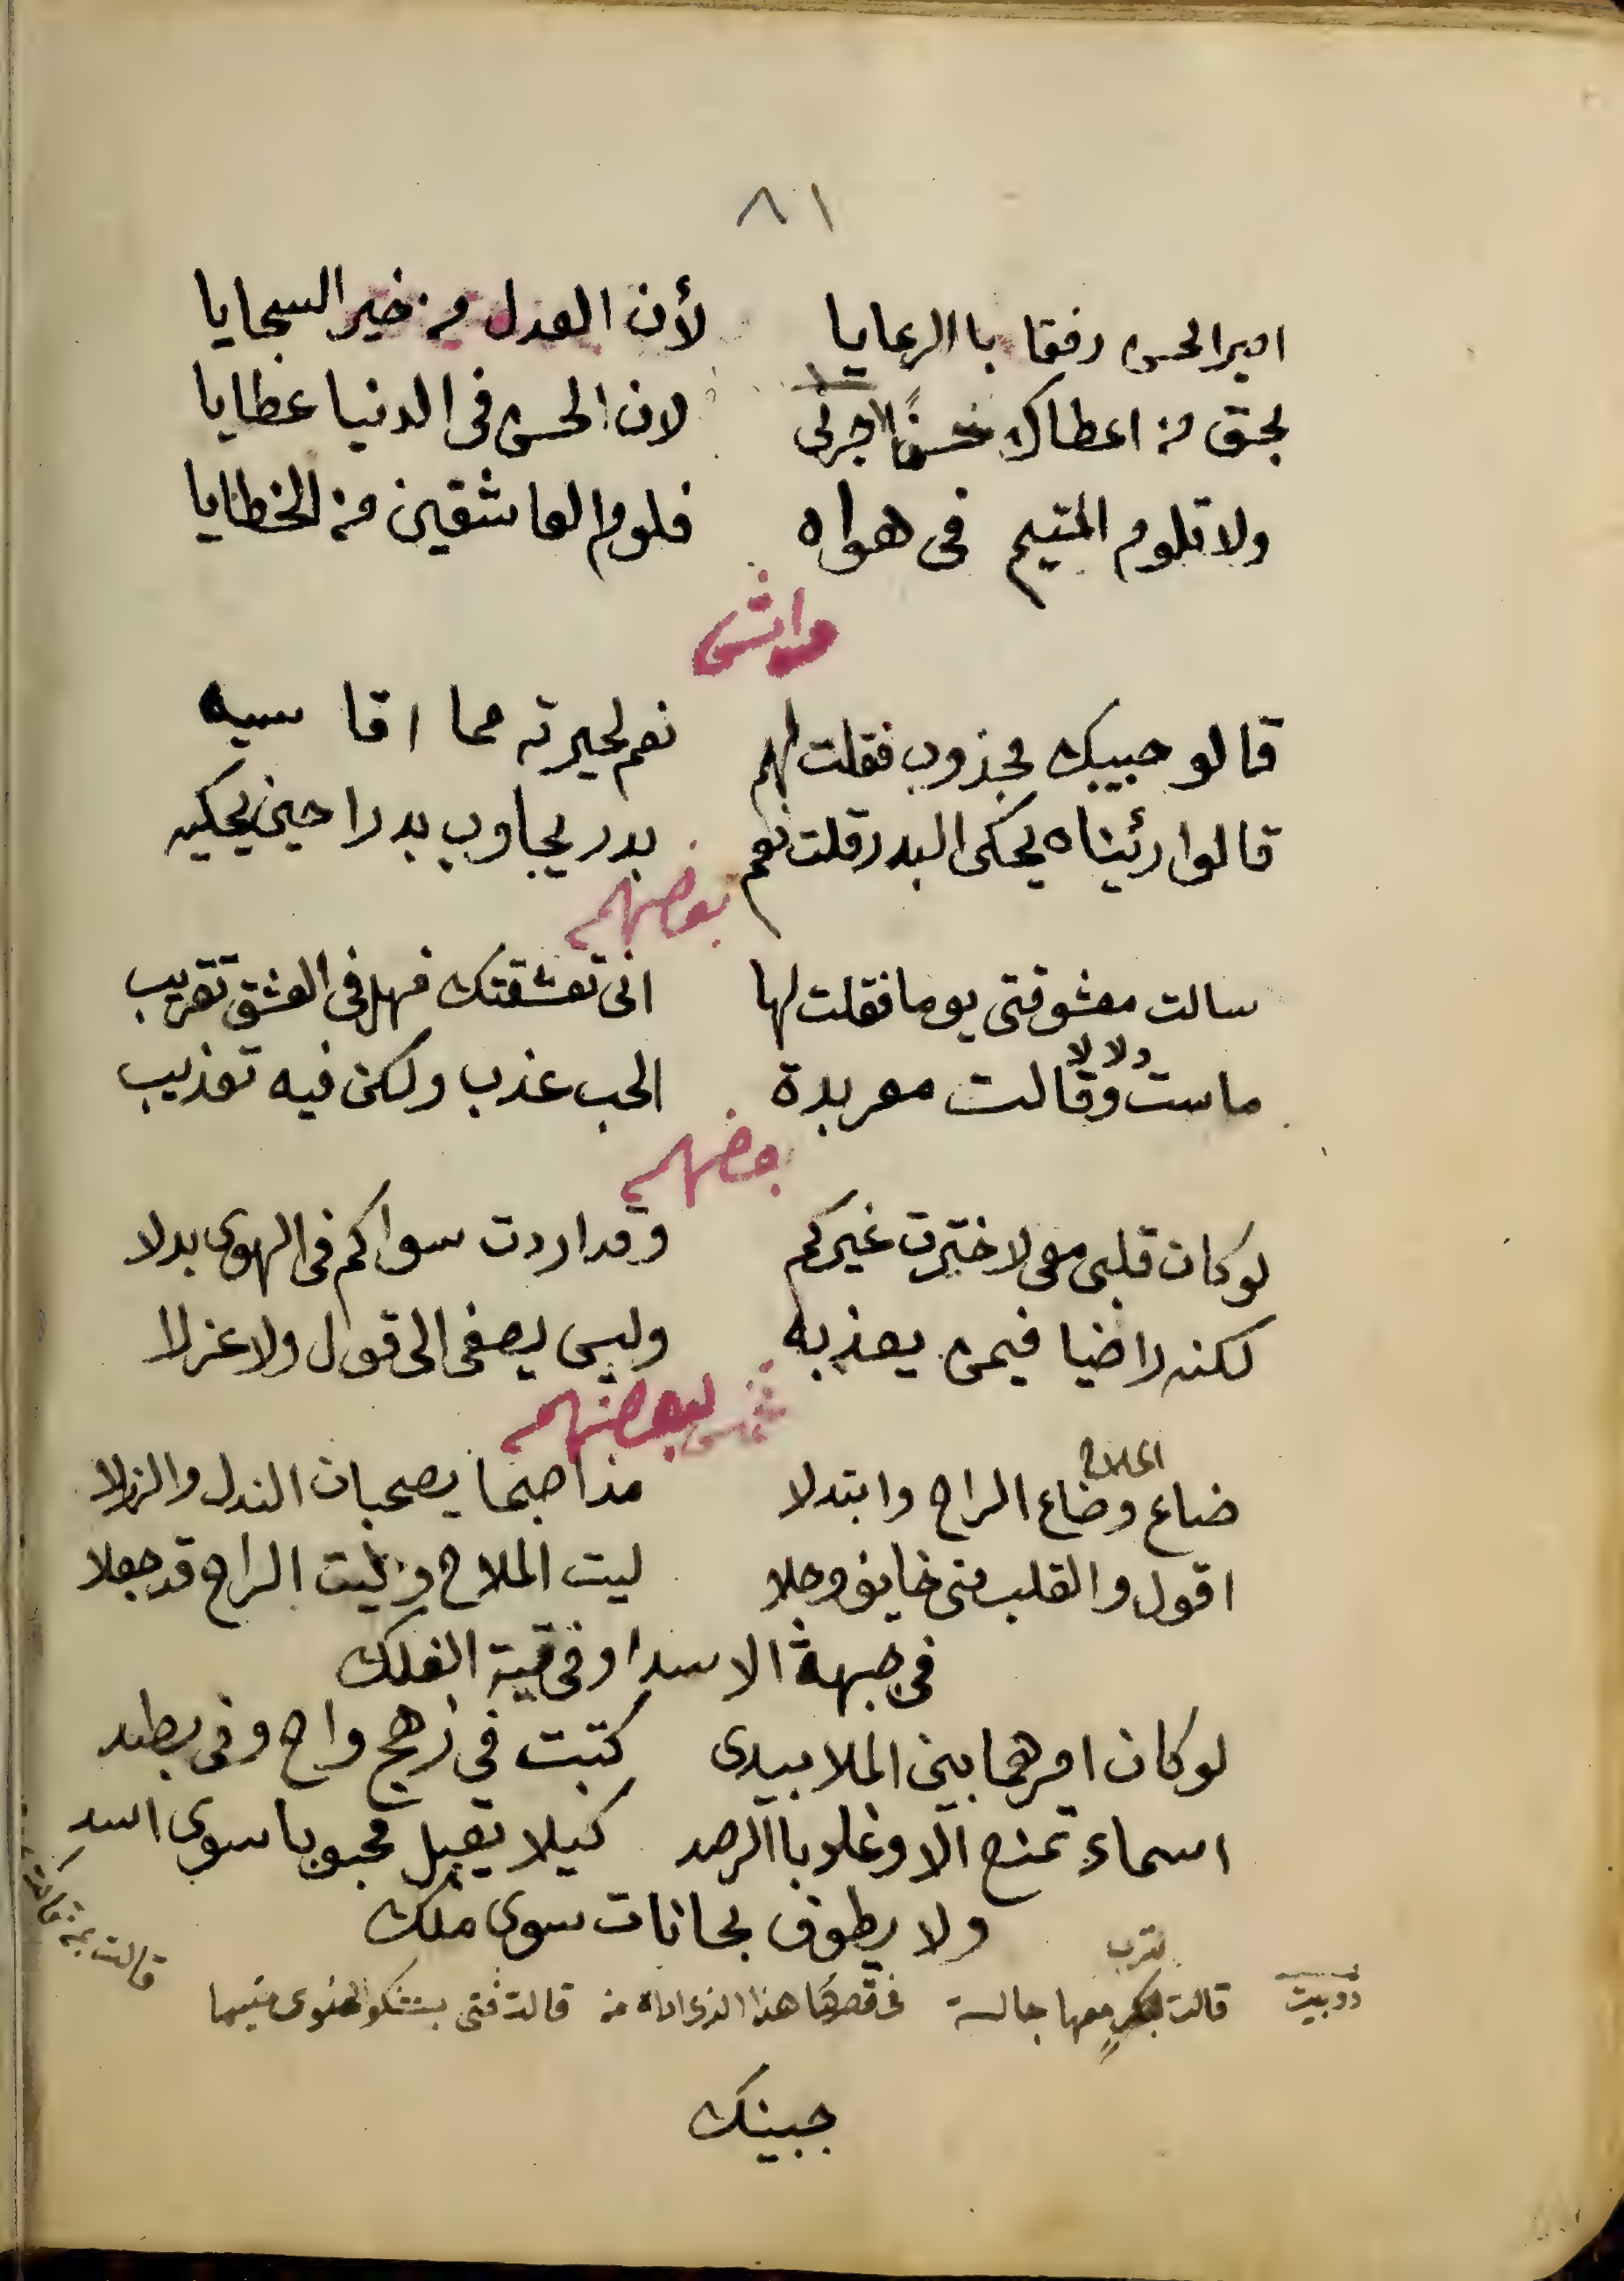 ٨١
امير الحسن رفقا باالرعايا لأن العدل من خير السجايا
بحق من اعطاك حسنًا لان الحسن فى الدنيا عطايا
ولا تلوم المتيم فى هواه فلوم العاشقين من الخطايا
قالو حبيبك مجذوب فقلت لهم نعم لحيرته مما اقا سيه
قالوا رئيناه يحكى البدر قلت نعم بدر يجاوب بدرا حين يحكيه
بعضهم
سالت معشوقتى يوما فقلت لها انى تعشقتك فهل فى العشق تقريب
ماست دلالا وقالت معربدة الحب عذب ولكن فيه تعذيب
بعضهم
لو كان قلبى معى لاخترت غيركم وقد اردت سواكم فى الهوى بدلا
لكنه راضيا فيمن يعذبه وليس يصغى الى قول ولا عزلا
لبعضهم
ضاع الملاح وضاع الراح وابتدلا مذ اصبحا يصحبان الندل والرزلا
اقول والقلب منى خايف وجلا ليت الملاح وليت الراح قد جعلا
فى جبهة الاسد او فى قبة الفلك
لو كان امرهما بين الملا بيدى كتبت في زهج واح وفى
اسماء تمنع الاوغلد باالرصد كيلا يقبل محبوبا سوى اسد
ولا يطوف بحانات سوى ملك
دوبيت قالت لترب معها جالسة فى قصرها هذا الذى اراه من قالت فتى يشتكو الهوى متيما
قالت بمن قالت
جبينك